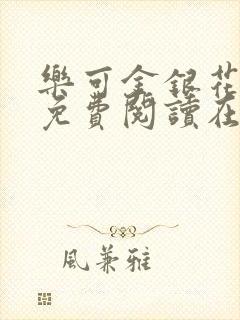 樂可金銀花
免費閱讀在
風兼雅